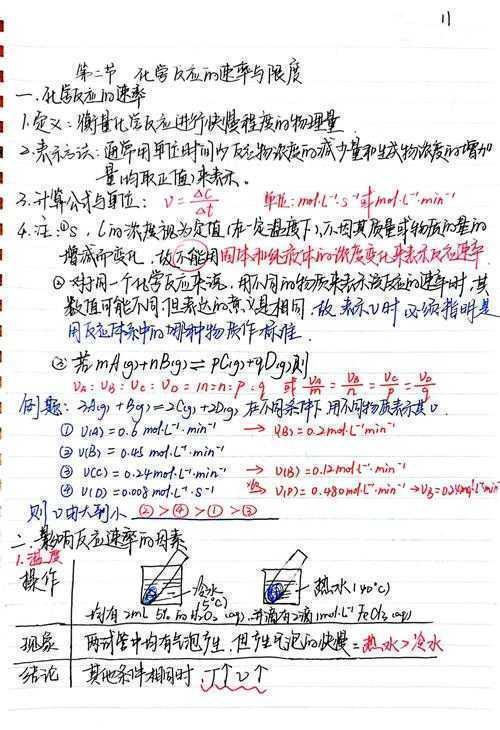 11
第二节 化学反应的速率与限度
一.化学反应的速率
1.定义:衡量化学反应进行快慢程度的物理量
2.表示方法:通常用单位时间内反应物浓度的减少量和生成物浓度的增加
量(均取正值)来表示.
3.计算公式与单位: v=Δc/Δt 单位:mol·L⁻¹·s⁻¹或mol·L⁻¹·min⁻¹
4.注:①s, l的浓度视为定值(在一定温度下),不因其质量或物质的量的
增减而变化, 故不能用固体和纯液体的浓度变化来表示反应速率.
②对于同一个化学反应来说,用不同的物质来表示该反应的速率时,其
数值可能不同,但表达的意义是相同. 故表示v时必须指明是
用反应体系中的哪种物质作标准.
③若mA(g)+nB(g)⇌pC(g)+qD(g)则
vA:vB:vC:vD=m:n:p:q 或 vA/m=vB/n=vC/p=vD/q
例题:2A(g)+B(g)=2C(g)+2D(g) 在不同条件下用不同物质表示其v.
① v(A)=0.6mol·L⁻¹·min⁻¹ → v(B)=0.2mol·L⁻¹·min⁻¹
② v(B)=0.45mol·L⁻¹·min⁻¹
③ v(C)=0.24mol·L⁻¹·min⁻¹ → v(B)=0.12mol·L⁻¹·min⁻¹
④ v(D)=0.008mol·L⁻¹·s⁻¹ v(D)=0.480mol·L⁻¹·min⁻¹→vB=0.24mol·L⁻¹·min⁻¹
则v由大到小 ②>④>①>③
二.影响反应速率的因素
1.温度
操作 冷水(5℃) 热水(40℃)
均有2mL 5% H₂O₂(aq),并滴有2滴1mol·L⁻¹FeCl₃(aq)
现象 两试管中均有气泡产生,但产生气泡的快慢=热水>冷水
结论 其他条件相同时,T↑v↑